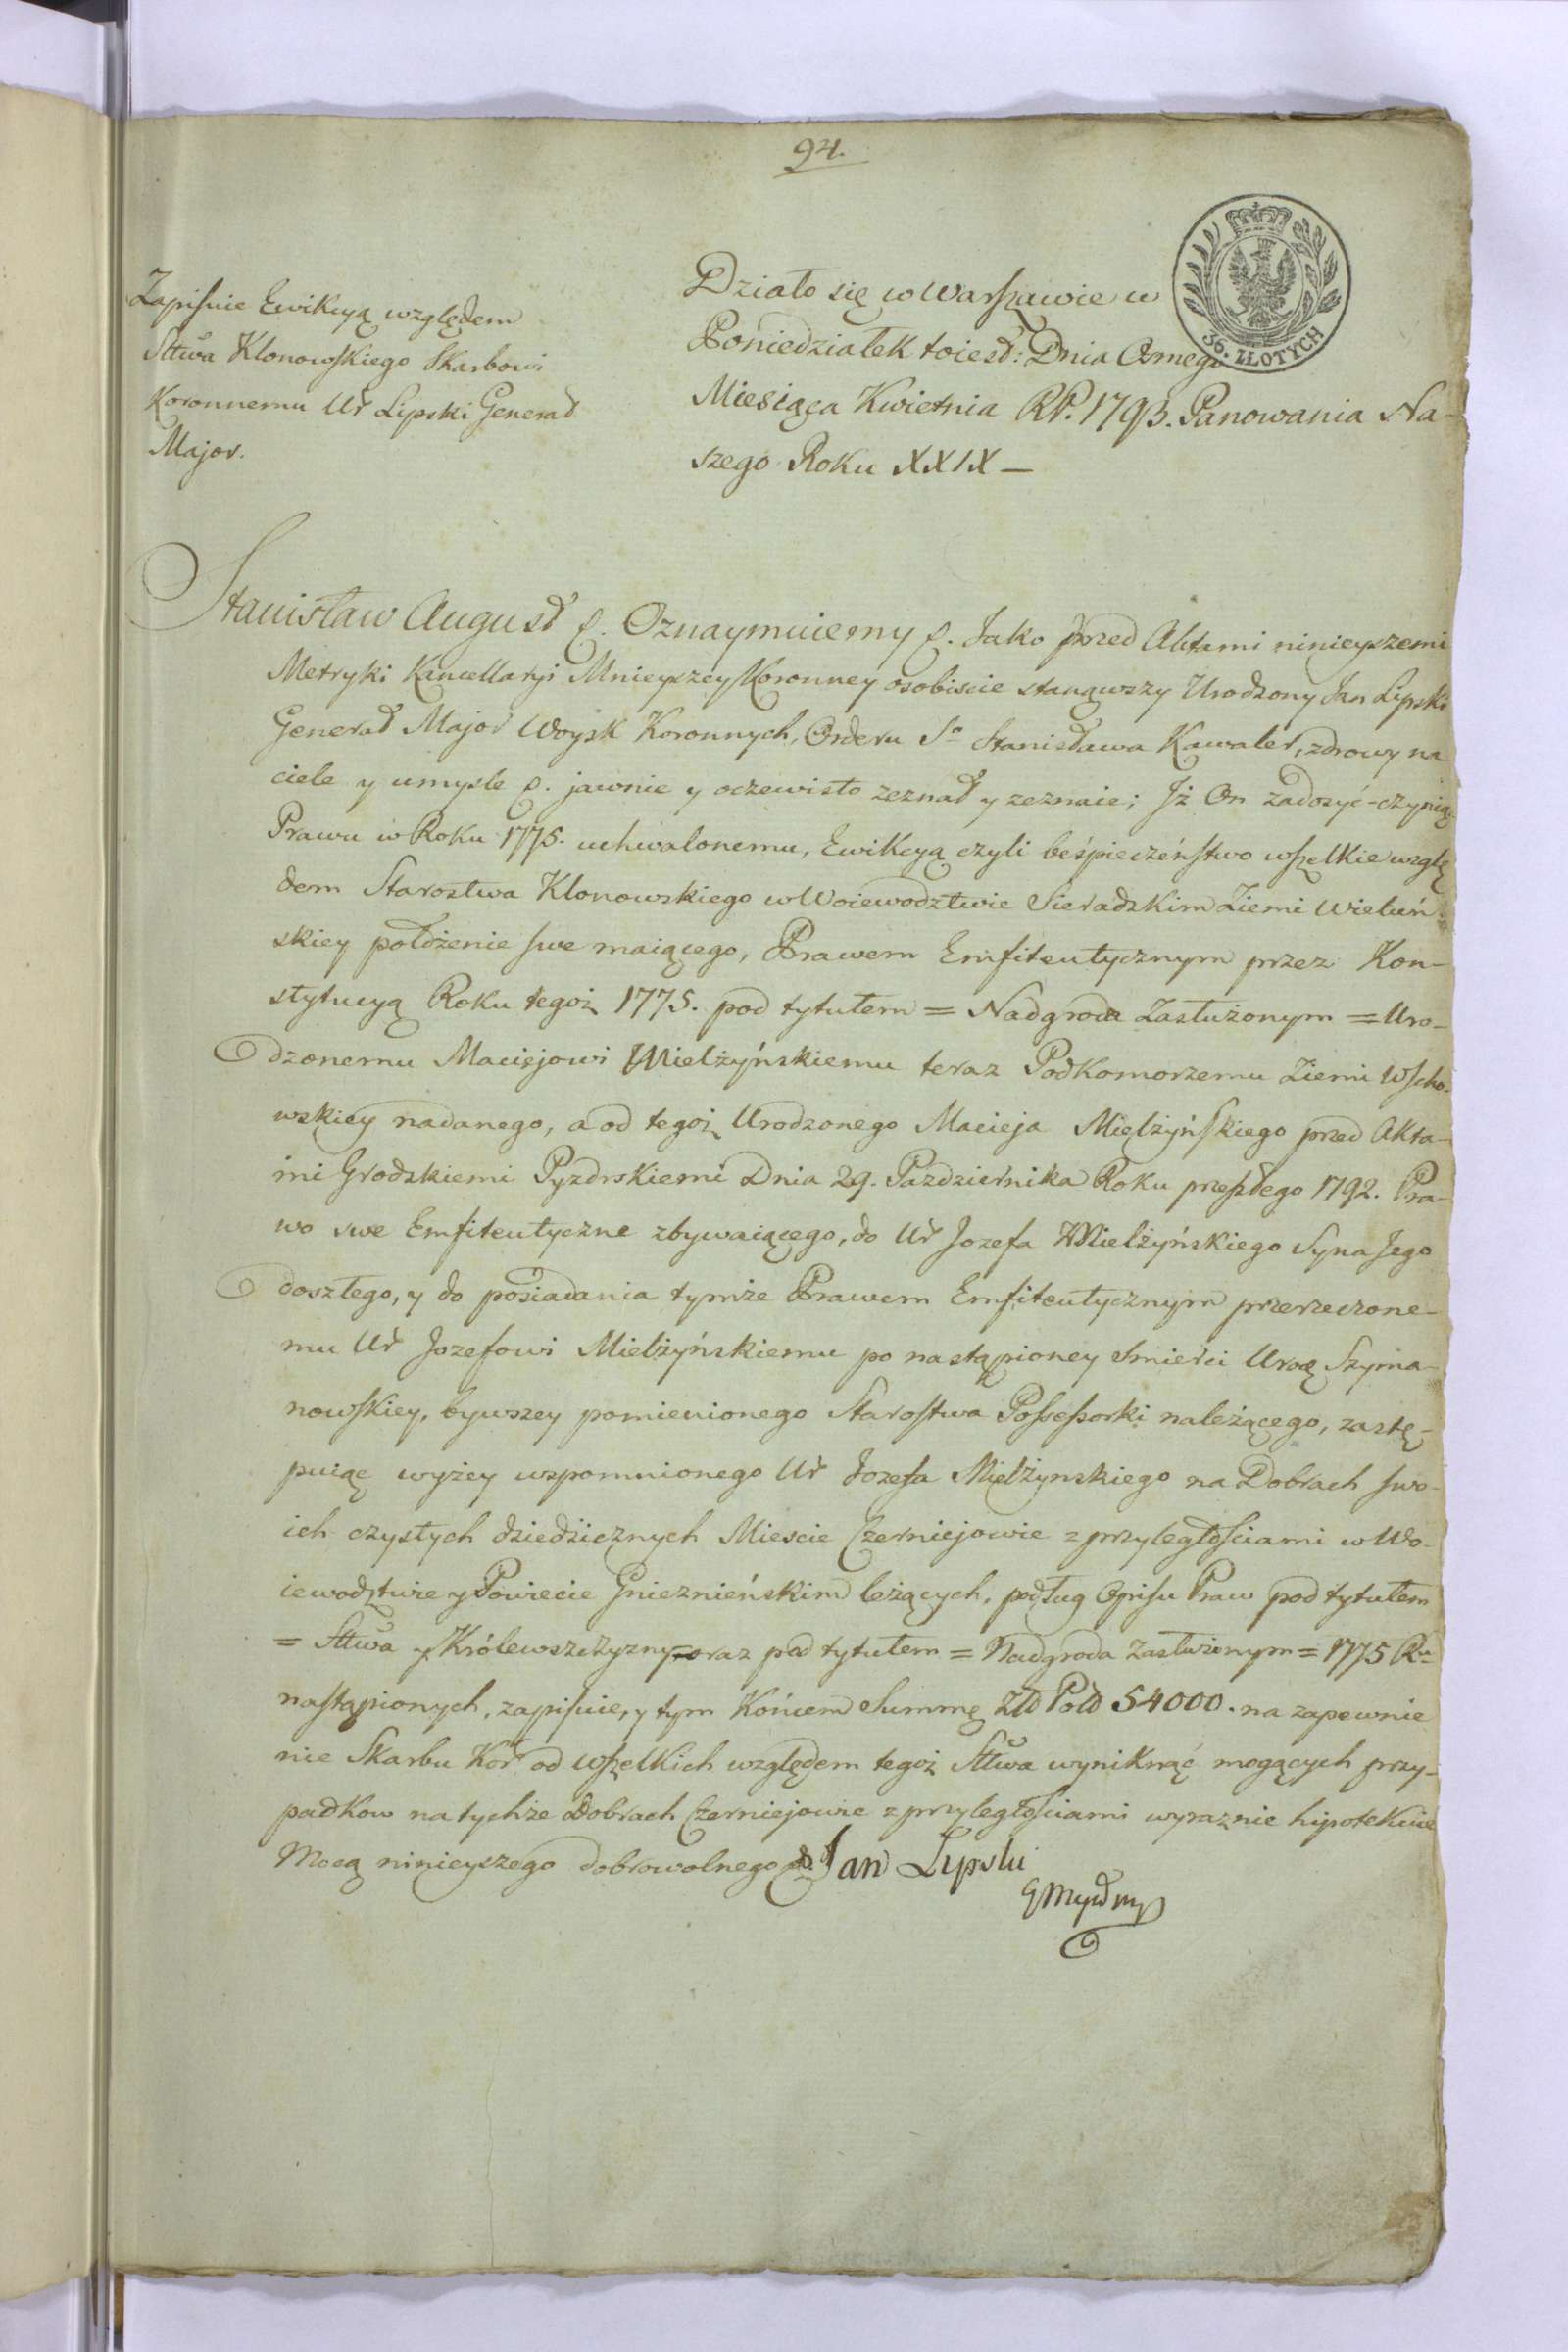 94.
Zapisuie Ewikcyą względem
Sttwa Klonowskiego Skarbowi
Koronnemu Ur Lipski Generał
Major.
Działo się w Warszawie w
Poniedziałek toiest: Dnia Osmego
Miesiąca Kwietnia RP. 1793. Panowania Na-
szego Roku XXIX —
36. ZŁOTYCH
Stanisław August &. Oznaymuiemy &. Jako przed Aktami ninieyszemi
Metryki Kancellaryi Mnieyszey Koronney osobiscie stanąwszy Urodzony Jan Lipski
Generał Major Woysk Koronnych, Orderu Sgo Stanisława Kawaler, zdrowy na
ciele y umysle &. jawnie y oczewisto zeznał y zeznaie; Iż On zadosyć-czyniąc
Prawu w Roku 1775. uchwalonemu, Ewikcyą czyli beśpieczeństwo wszelkie wzglę
dem Starostwa Klonowskiego w Woiewodztwie Sieradzkim Ziemi Wieluń
skiey położenie swe maiącego, Prawem Emfiteutycznym przez Kon-
stytucyą Roku tegoż 1775. pod tytułem = Nadgroda Zasłużonym = Uro-
dzonemu Maciejowi Mielżyńskiemu teraz Podkomorzemu Ziemi Wscho-
wskiey nadanego, a od tegoż Urodzonego Macieja Mielżyńskiego przed Akta-
mi Grodzkiemi Pyzdrskiemi Dnia 29. Pazdziernika Roku przeszłego 1792. Pra-
wo swe Emfiteutyczne zbywaiącego, do Ur Jozefa Mielżyńskiego Syna Jego
doszłego, y do posiadania tymże Prawem Emfiteutycznym przerzeczone-
mu Ur Jozefowi Mielżyńskiemu po nastąpioney smierci Urod Szyma-
nowskiey, bywszey pomienionego Starostwa Possessorki należącego, zastę-
puiąc wyżey wspomnionego Ur Jozefa Mielżynskiego na Dobrach swo-
ich czystych dziedzicznych Miescie Czerniejowie z przyległościami w Wo-
iewodztwie y Powiecie Gnieznieńskim leżących, podług Opisu Praw pod tytułem
= Sttwa y Królewszczyzny = oraz pod tytułem = Nadgroda Zasłużonym = 1775 Ru
nastąpionych, zapisuie, y tym Końcem Summę Złł Poll 54000. na zapewnie
nie Skarbu Kor od wszelkich względem tegoż Sttwa wyniknąć mogących przy-
padkow na tychże Dobrach Czerniejowie z przyległościami wyraznie hipotekuie
Mocą ninieyszego dobrowolnego &. Jan Lipski